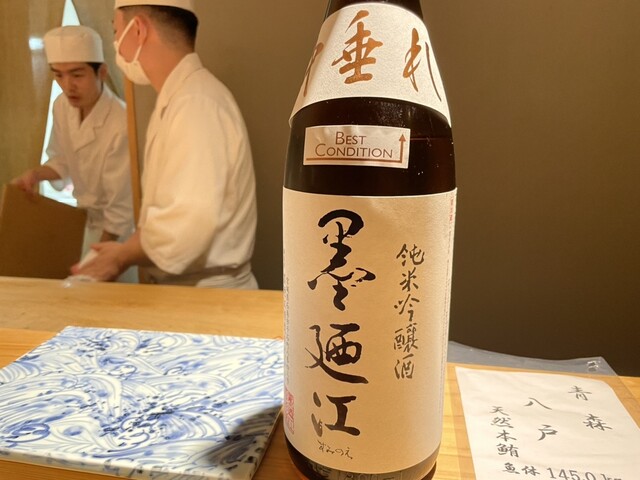 垂れ
BEST
CONDITION
墨廼江
純米吟醸酒
すみのえ
青森
八戸
天然本鮪
魚体 145.0 kg